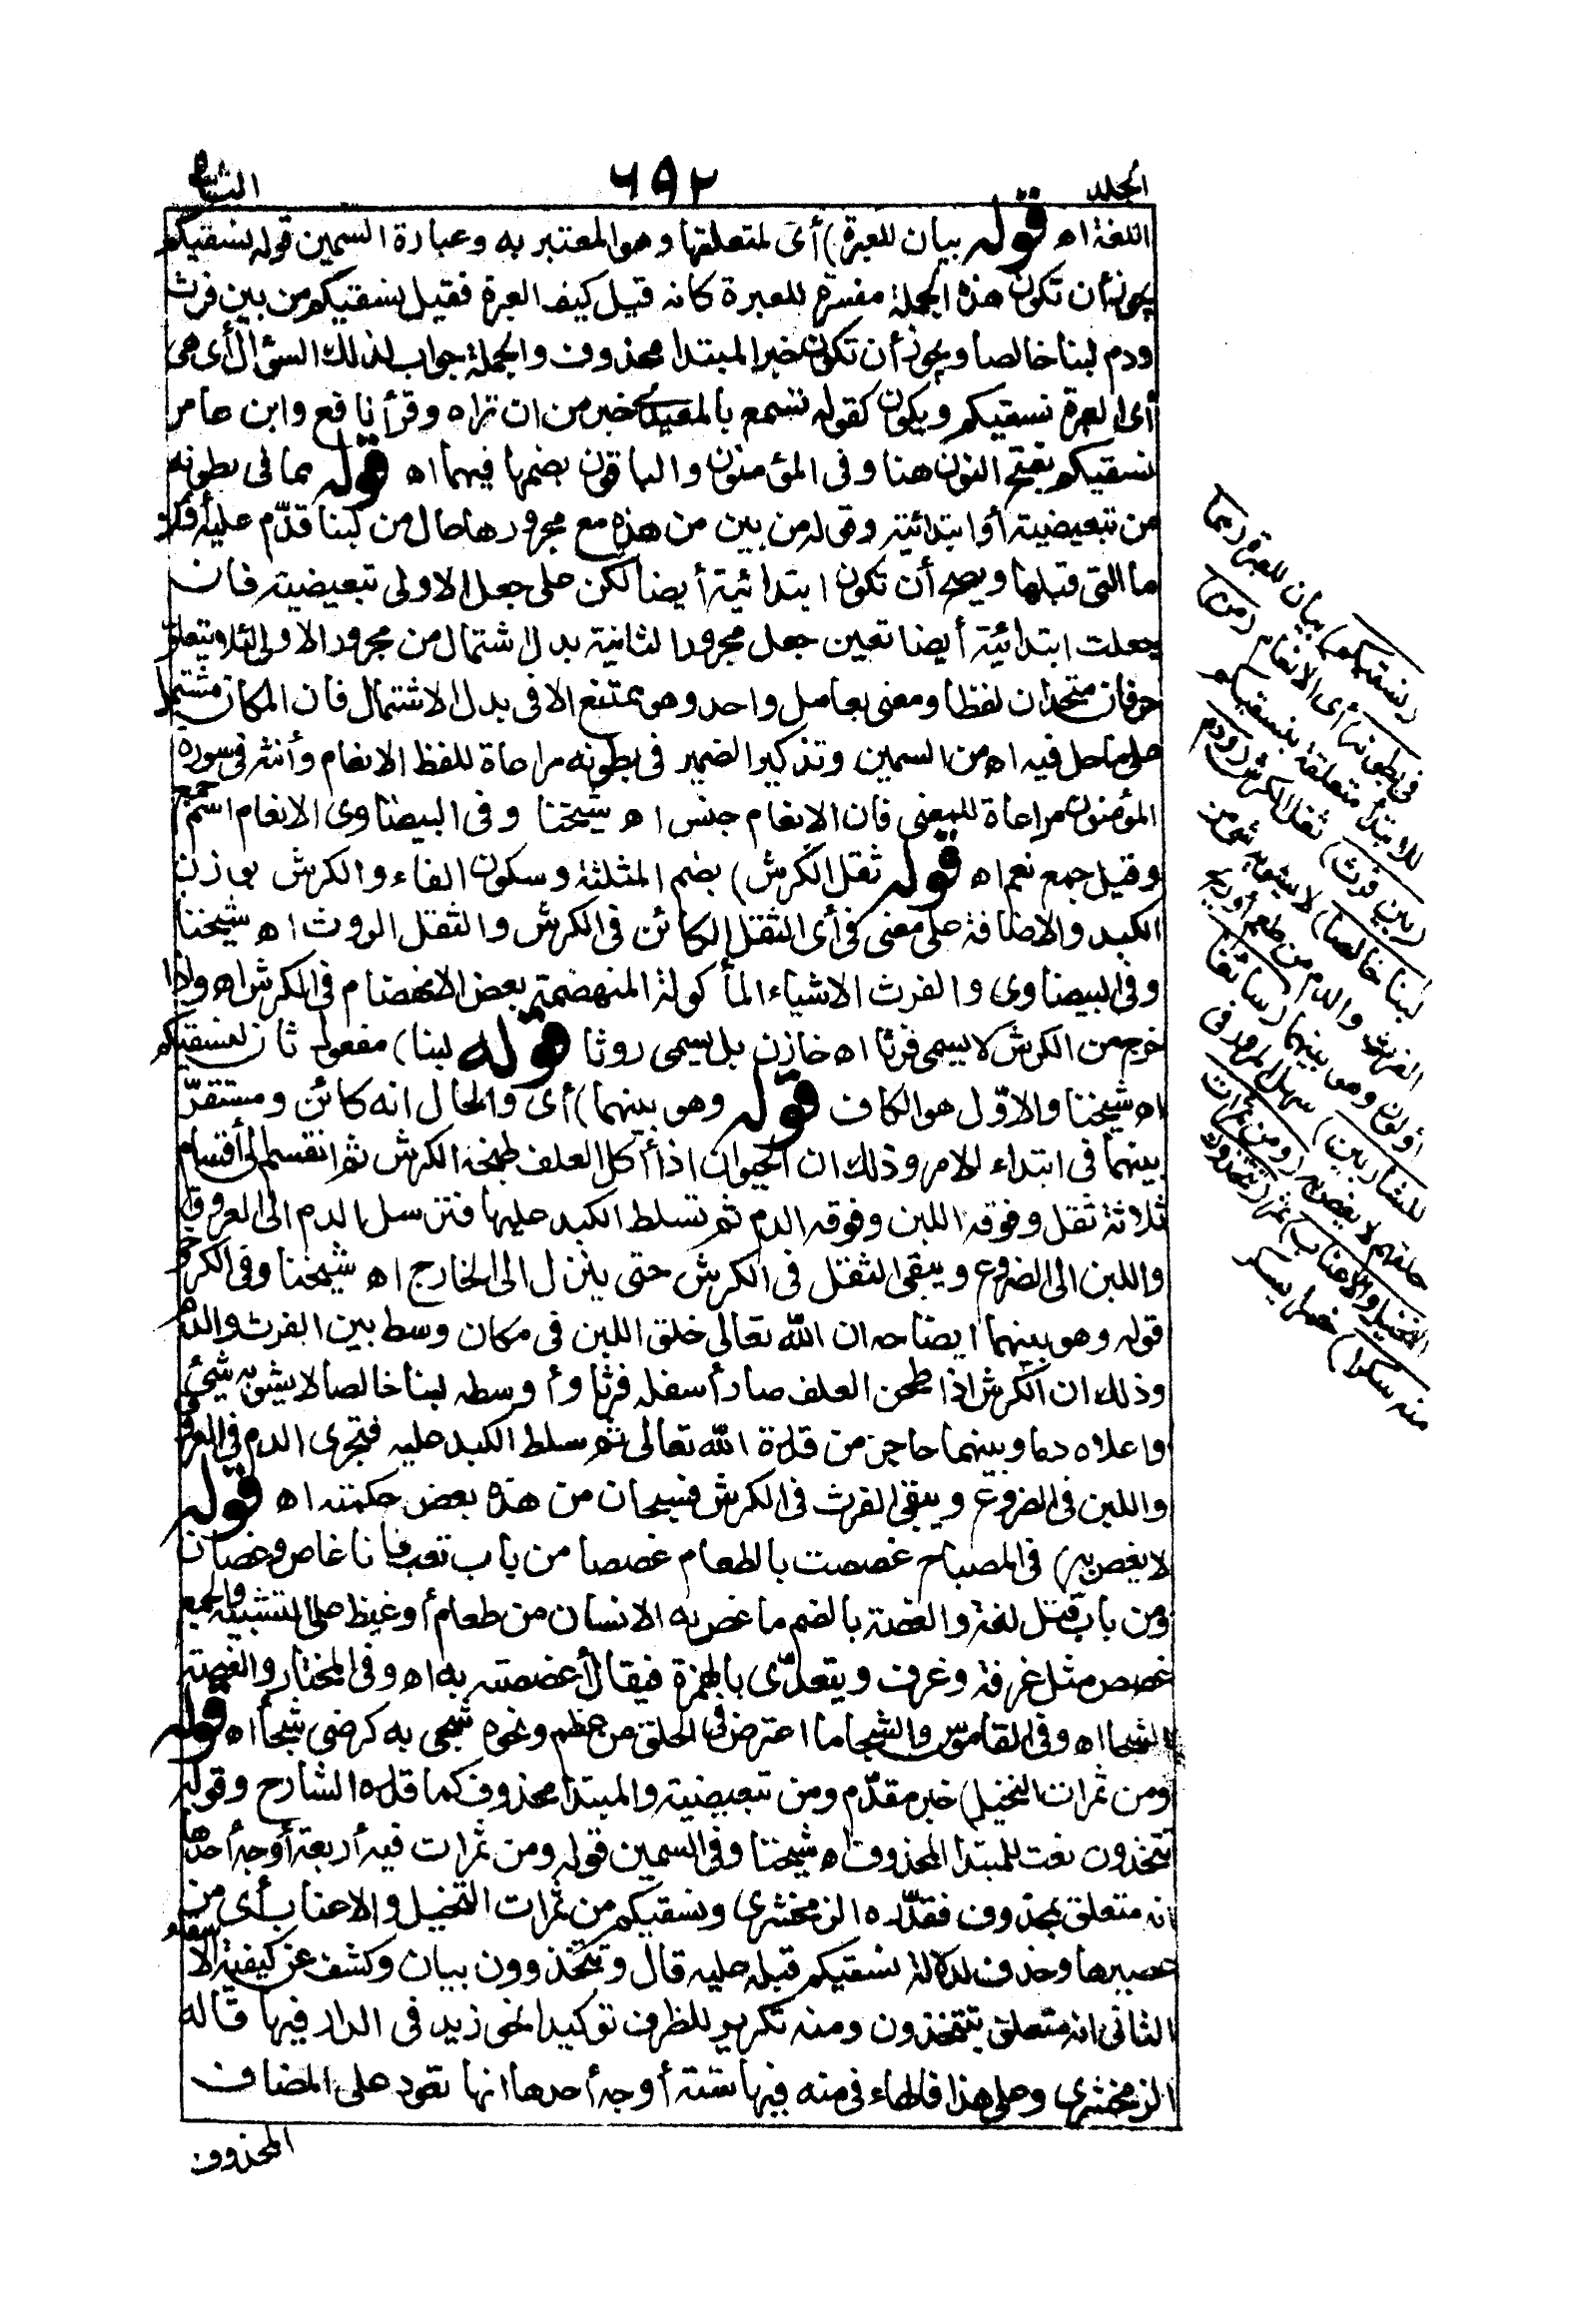 المجلد
٦٩٢
الثاني
اللغة اه قوله بيان للعبرة) أى لمتعلقها وهو المعتبر به وعبارة السمين قوله نسقيكم
يجوز أن تكون هذه الجملة مفسرة للعبرة كانه قيل كيف العبرة فقيل نسقيكم من بين فرث
ودم لبنا خالصا ويجوز أن تكون خبرا لمبتدا محذوف والجملة جواب لذلك السؤال أى هى
أى العبرة نسقيكم ويكون كقوله تسمع بالمعيدى خير من ان تراه وقرأ نافع وابن عامر
نسقيكم بفتح النون هنا وفى المؤمنون والباقون بضمها فيهما اه قوله مما فى بطونه
من تبعيضية أو ابتدائية وقوله من بين من هذه مع مجرورها حال من لبنا قدّم عليه أو من
ما التى قبلها ويصح أن تكون ابتدائية أيضا لكن على جعل الاولى تبعيضية فان
جعلت ابتدائية أيضا تعين جعل مجرور الثانية بدل اشتمال من مجرور الاولى لئلا يتعلق
حرفان متحدان لفظا ومعنى بعامل واحد وهو ممتنع الا فى بدل الاشتمال فان المكان مشتمل
على ما حل فيه اه من السمين وتذكير الضمير فى بطونه مراعاة للفظ الانعام وأنثه فى سورة
المؤمنون مراعاة للمعنى فان الانعام جنس اه شيخنا وفى البيضاوى الانعام اسم جمع
وقيل جمع نعم اه قوله ثفل الكرش) بضم المثلثة وسكون الفاء والكرش بوزن
الكبد والاضافة على معنى فى أى الثفل الكائن فى الكرش والثفل الروث اه شيخنا
وفى البيضاوى والفرث الاشياء المأكولة المنهضمة بعض الانهضام فى الكرش اه واذا
خرج من الكرش لا يسمى فرثا اه خازن بل يسمى روثا قوله لبنا) مفعول ثان لنسقيكم
اه شيخنا والاوّل هو الكاف قوله وهو بينهما) أى والحال انه كائن ومستقرّ
بينهما فى ابتداء الامر وذلك ان الحيوان اذا أكل العلف طبخه الكرش ثم انقسم الى أقسام
ثلاثة ثفل وفوقه اللبن وفوقه الدم ثم تسلط الكبد عليها فترسل الدم الى العروق
واللبن الى الضروع ويبقى الثفل فى الكرش حتى ينزل الى الخارج اه شيخنا وفى الكرخى
قوله وهو بينهما ايضاحه ان الله تعالى خلق اللبن فى مكان وسط بين الفرث والدم
وذلك ان الكرش اذا طحن العلف صار أسفله فرثا وأوسطه لبنا خالصا لا يشوبه شئ
واعلاه دما وبينهما حاجز من قدرة الله تعالى ثم سلط الكبد عليه فتجرى الدم فى العروق
واللبن فى الضروع ويبقى الفرث فى الكرش فسبحان من هذه بعض حكمته اه قوله
لا يغص به) فى المصباح غصصت بالطعام غصصا من باب تعب فانا غاص وغصان
ومن باب قتل لغة والغصة بالضم ما غص به الانسان من طعام أو غيظ على التشبيه والجمع
غصص مثل غرفة وغرف ويتعدّى بالهمزة فيقال أغصصته به اه وفى المختار والغصة
الشجا اه وفى القاموس والشجا ما اعترض فى الحلق من عظم ونحوه شجى به كرضى شجا اه قوله
ومن ثمرات النخيل) خبر مقدّم ومن تبعيضية والمبتدا محذوف كما قدره الشارح وقوله
تتخذون نعت للمبتدا المحذوف اه شيخنا وفى السمين قوله ومن ثمرات فيه أربعة أوجه أحدها
انه متعلق بمحذوف فقدّره الزمخشرى ونسقيكم من ثمرات النخيل والاعناب أى من
عصيرها وحذف لدلالة نسقيكم قبله عليه قال وتتخذوون بيان وكشف عن كيفية الاسقاء
الثانى انه متعلق بتتخذون ومنه تكرير للظرف توكيدا نحو زيد فى الدار فيها قاله
الزمخشرى وعلى هذا فالهاء فى منه فيها ستة أوجه أحدها انها تعود على المضاف
المحذوف
(نسقيكم) بيان للعبرة (مما
فى بطونه) أى الانعام (من)
للابتداء متعلقة بنسقيكم
(بين فرث) ثفل الكرش (ودم
لبنا خالصا) لا يشوبه شئ من
الفرث والدم من طعم أو ريح
أو لون وهو بينهما (سائغا
للشاربين) سهل المرور فى
حلقهم لا يغص به (ومن ثمرات
النخيل والاعناب) ثمر (تتخذون
منه سكرا) خمرا يسكر